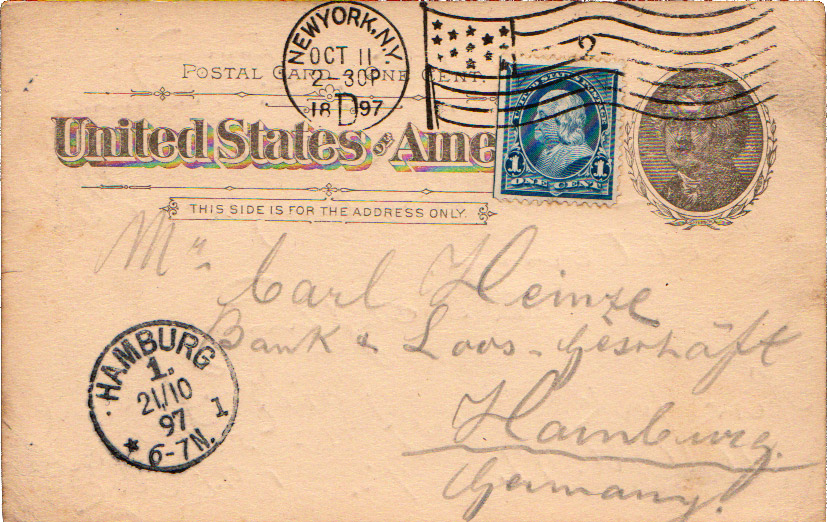 NEW YORK, N.Y.
OCT 11
2 30P
D
18 97
2
POSTAL CARD ONE CENT.
United States of Ame
UNITED STATES OF AMERICA
1 1
ONE CENT
THIS SIDE IS FOR THE ADDRESS ONLY.
Mr. Carl Heinze
Bank & Loos-Geschäft
Hamburg
Germany.
HAMBURG
1.
21/10
97 1
* 6-7N.